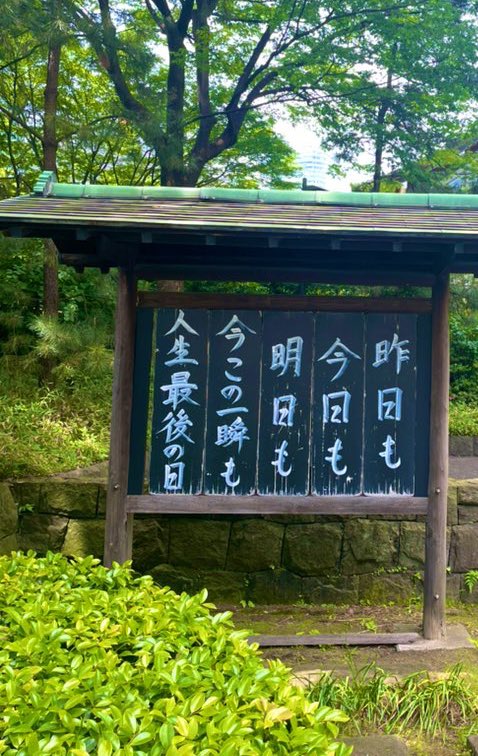 昨日も
今日も
明日も
今この一瞬も
人生最後の日